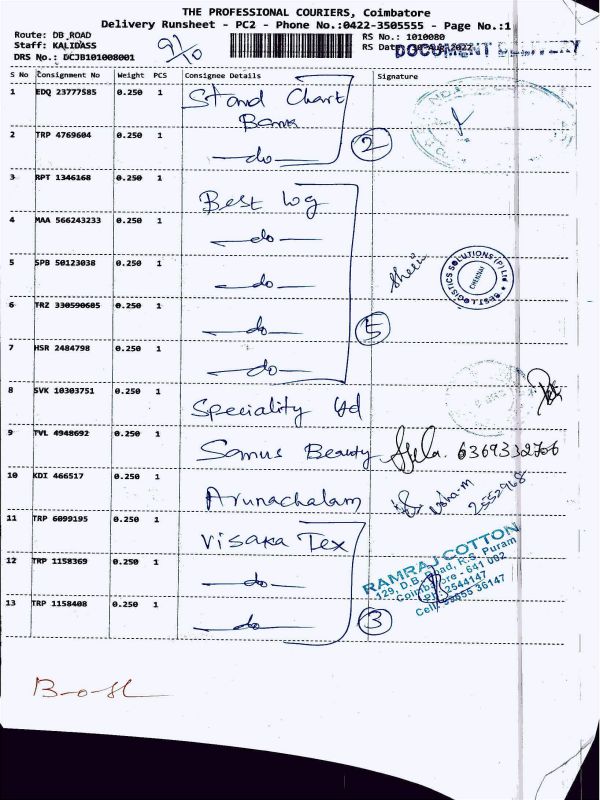 THE PROFESSIONAL COURIERS, Coimbatore
Delivery Runsheet - PC2 - Phone No.:0422-3505555 - Page No.:1
Route: DB_ROAD
Staff: KALIDASS
DRS No.: DCJB101008001
9/10
RS No.: 1010080
RS Date:
DOCUMENT DELIVERY
S No Consignment No Weight PCS Consignee Details Signature
1 EDQ 23777585 0.250 1 Stand Chart Bank
2 TRP 4769604 0.250 1 —do—
2
3 RPT 1346168 0.250 1 Best Log
4 MAA 566243233 0.250 1 —do—
5 SPB 50123038 0.250 1 —do—
BEST LOGISTICS SOLUTIONS (P) Ltd
CHENNAI
6 TRZ 330590605 0.250 1 —do—
5
7 HSR 2484798 0.250 1 —do—
8 SVK 10303751 0.250 1 Speciality Ltd
9 TVL 4948692 0.250 1 Samus Beauty 6369332766
10 KDI 466517 0.250 1 Arunachalam Usha.m 2552968
11 TRP 6099195 0.250 1 Visaka Tex
12 TRP 1158369 0.250 1 —do—
13 TRP 1158408 0.250 1 —do—
3
RAMRAJ COTTON
129, D.B. Road, R.S. Puram
Coimbatore - 641 002
2544147
Cell: 36147